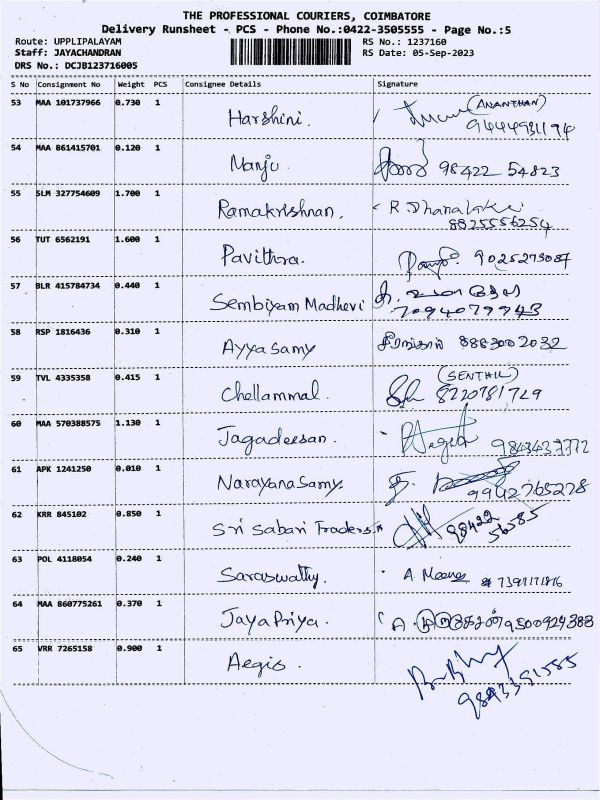 THE PROFESSIONAL COURIERS, COIMBATORE
Delivery Runsheet - PCS - Phone No.:0422-3505555 - Page No.:5
Route: UPPLIPALAYAM RS No.: 1237160
Staff: JAYACHANDRAN RS Date: 05-Sep-2023
DRS No.: DCJB123716005
S No Consignment No Weight PCS Consignee Details Signature
53 MAA 101737966 0.730 1 Harshini. (ANANTHAN)
9444931194
54 MAA 861415701 0.120 1 Manju 98422 54823
55 SLM 327754609 1.700 1 Ramakrishnan. R. Dhanalakshmi
8825556254
56 TUT 6562191 1.600 1 Pavithra. 9025273087
57 BLR 415784734 0.440 1 Sembiyam Madhevi
7094079943
58 RSP 1816436 0.310 1 Ayyasamy 8883002032
59 TVL 4335358 0.415 1 Chellammal. (SENTHIL)
8220781729
60 MAA 570388575 1.130 1 Jagadeesan. 9843437772
61 APK 1241250 0.010 1 Narayanasamy 9942765278
62 KRR 845102 0.850 1 Sri Sabari Traders 98422
56585
63 POL 4118054 0.240 1 Saraswathy. A Meena
64 MAA 860775261 0.370 1 JayaPriya. 9500924388
65 VRR 7265158 0.900 1 Aegis.
9843391585